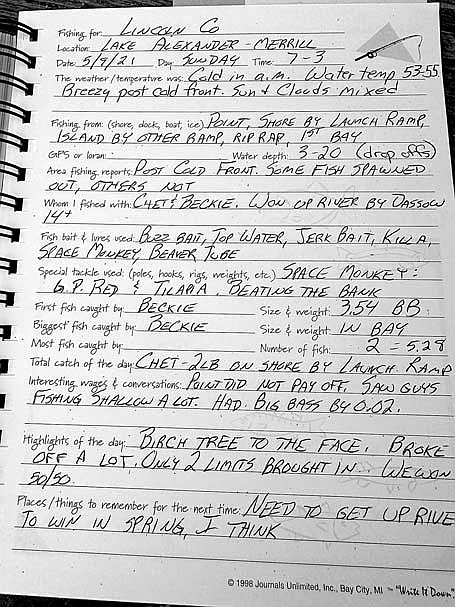 Fishing for: LINCOLN CO
Location: LAKE ALEXANDER - MERRILL
Date: 5/9/21 Day SUNDAY Time: 7-3
The weather/temperature was: Cold in a.m. Water temp 53-55
Breezy post cold front. Sun & Clouds mixed
Fishing from: (shore, dock, boat, ice) POINT, SHORE BY LAUNCH RAMP,
ISLAND BY OTHER RAMP, RIP RAP, 1ST BAY
GPS or loran: Water depth: 3-20 (drop offs)
Area fishing reports: POST COLD FRONT. SOME FISH SPAWNED
OUT, OTHERS NOT
Whom I fished with: CHET & BECKIE. WON UP RIVER BY DASSOW
14+
Fish bait & lures used: BUZZ BAIT, TOP WATER, JERK BAIT, KILLA,
SPACE MONKEY, BEAVER, TUBE
Special tackle used: (poles, hooks, rigs, weights, etc.) SPACE MONKEY:
G.P. RED & TILAPIA. BEATING THE BANK
First fish caught by: BECKIE Size & weight: 3.54 BB
Biggest fish caught by: BECKIE Size & weight: IN BAY
Most fish caught by: Number of fish: 2 = 5.28
Total catch of the day: CHET-2LB ON SHORE BY LAUNCH RAMP
Interesting wages & conversations: POINT DID NOT PAY OFF. SAW GUYS
FISHING SHALLOW A LOT. HAD BIG BASS BY 0.02.
Highlights of the day: BIRCH TREE TO THE FACE. BROKE
OFF A LOT. ONLY 2 LIMITS BROUGHT IN. WE WON
50/50.
Places/things to remember for the next time: NEED TO GET UP RIVE
TO WIN IN SPRING, I THINK
© 1998 Journals Unlimited, Inc., Bay City, MI ™ "Write It Down"